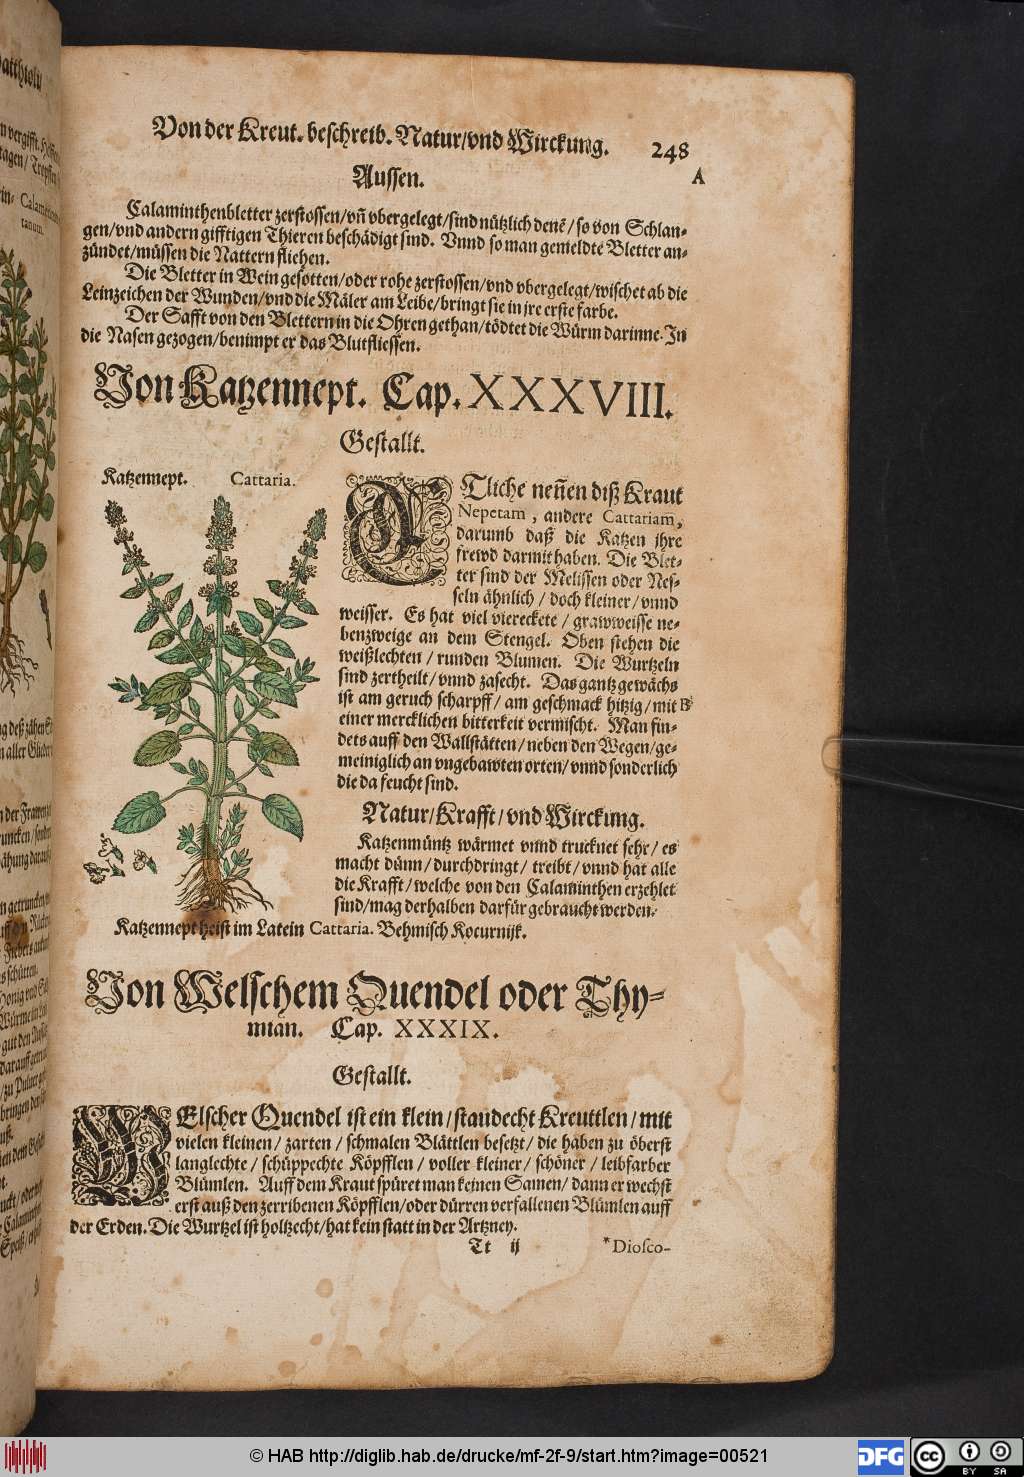 Von der Kreut. beschreib. Natur/vnd Wirckung. 248
Aussen. A
Calaminthenbletter zerstossen/vñ vbergelegt/sind nützlich denẽ/so von Schlan-
gen/vnd andern gifftigen Thieren beschädigt sind. Vnnd so man gemeldte Bletter an-
zündet/müssen die Nattern fliehen.
Die Bletter in Wein gesotten/oder rohe zerstossen/vnd vbergelegt/wischet ab die
Leinzeichen der Wunden/vnd die Mäler am Leibe/bringt sie in jre erste farbe.
Der Safft von den Blettern in die Ohren gethan/tödtet die Würm darinne. In
die Nasen gezogen/benimpt er das Blutfliessen.
Von Katzennept. Cap. XXXVIII.
Gestallt.
Katzennept. Cattaria.
ETliche neñen diß Kraut
Nepetam, andere Cattariam,
darumb daß die Katzen jhre
frewd darmit haben. Die Blet-
ter sind der Melissen oder Nes-
seln ähnlich / doch kleiner / vnnd
weisser. Es hat viel viereckete / grawweisse ne-
benzweige an dem Stengel. Oben stehen die
weißlechten / runden Blumen. Die Wurtzeln
sind zertheilt/vnnd zasecht. Das gantz gewächs
ist am geruch scharpff / am geschmack hitzig / mit B
einer mercklichen bitterkeit vermischt. Man fin-
dets auff den Wallstätten/neben den Wegen/ge-
meiniglich an vngebawten orten/vnnd sonderlich
die da feucht sind.
Natur/Krafft/vnd Wirckung.
Katzenmüntz wärmet vnnd trucknet sehr / es
macht dünn / durchdringt / treibt / vnnd hat alle
die Krafft / welche von den Calaminthen erzehlet
sind/mag derhalben darfür gebraucht werden.
Katzennept heist im Latein Cattaria. Behmisch Kocurnijk.
Von Welschem Quendel oder Thy-
mian. Cap. XXXIX.
Gestallt.
WElscher Quendel ist ein klein/staudecht Kreuttlen/mit
vielen kleinen / zarten / schmalen Blättlen besetzt / die haben zu öberst
langlechte / schüppechte Köpfflen / voller kleiner / schöner / leibfarber
Blümlen. Auff dem Kraut spüret man keinen Samen/ dann er wechst
erst auß den zerribenen Köpfflen/oder dürren verfallenen Blümlen auff
der Erden. Die Wurtzel ist holtzecht/hat kein statt in der Artzney.
Tt ij *Diosco-
© HAB http://diglib.hab.de/drucke/mf-2f-9/start.htm?image=00521
DFG cc BY SA